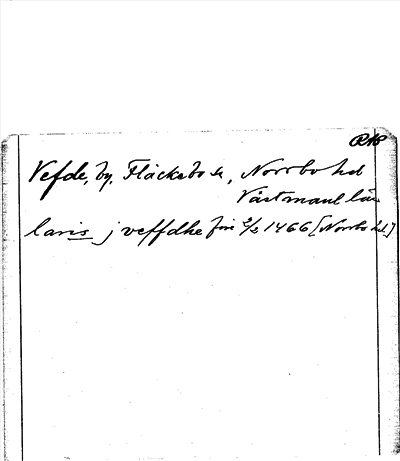 RAP
Vefde, by, Fläckebo sn, Norrbo hd
Västmanl län
laris j veffdhe fri 2/2 1466 [Norrbo hd.]